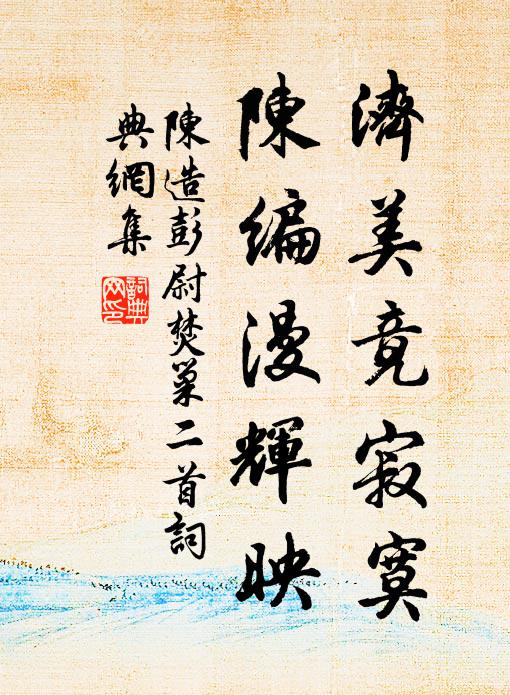 濟美竟寂寞
陳編漫輝映
陳造彭尉焚巢二首詞
典網集
詞典網印